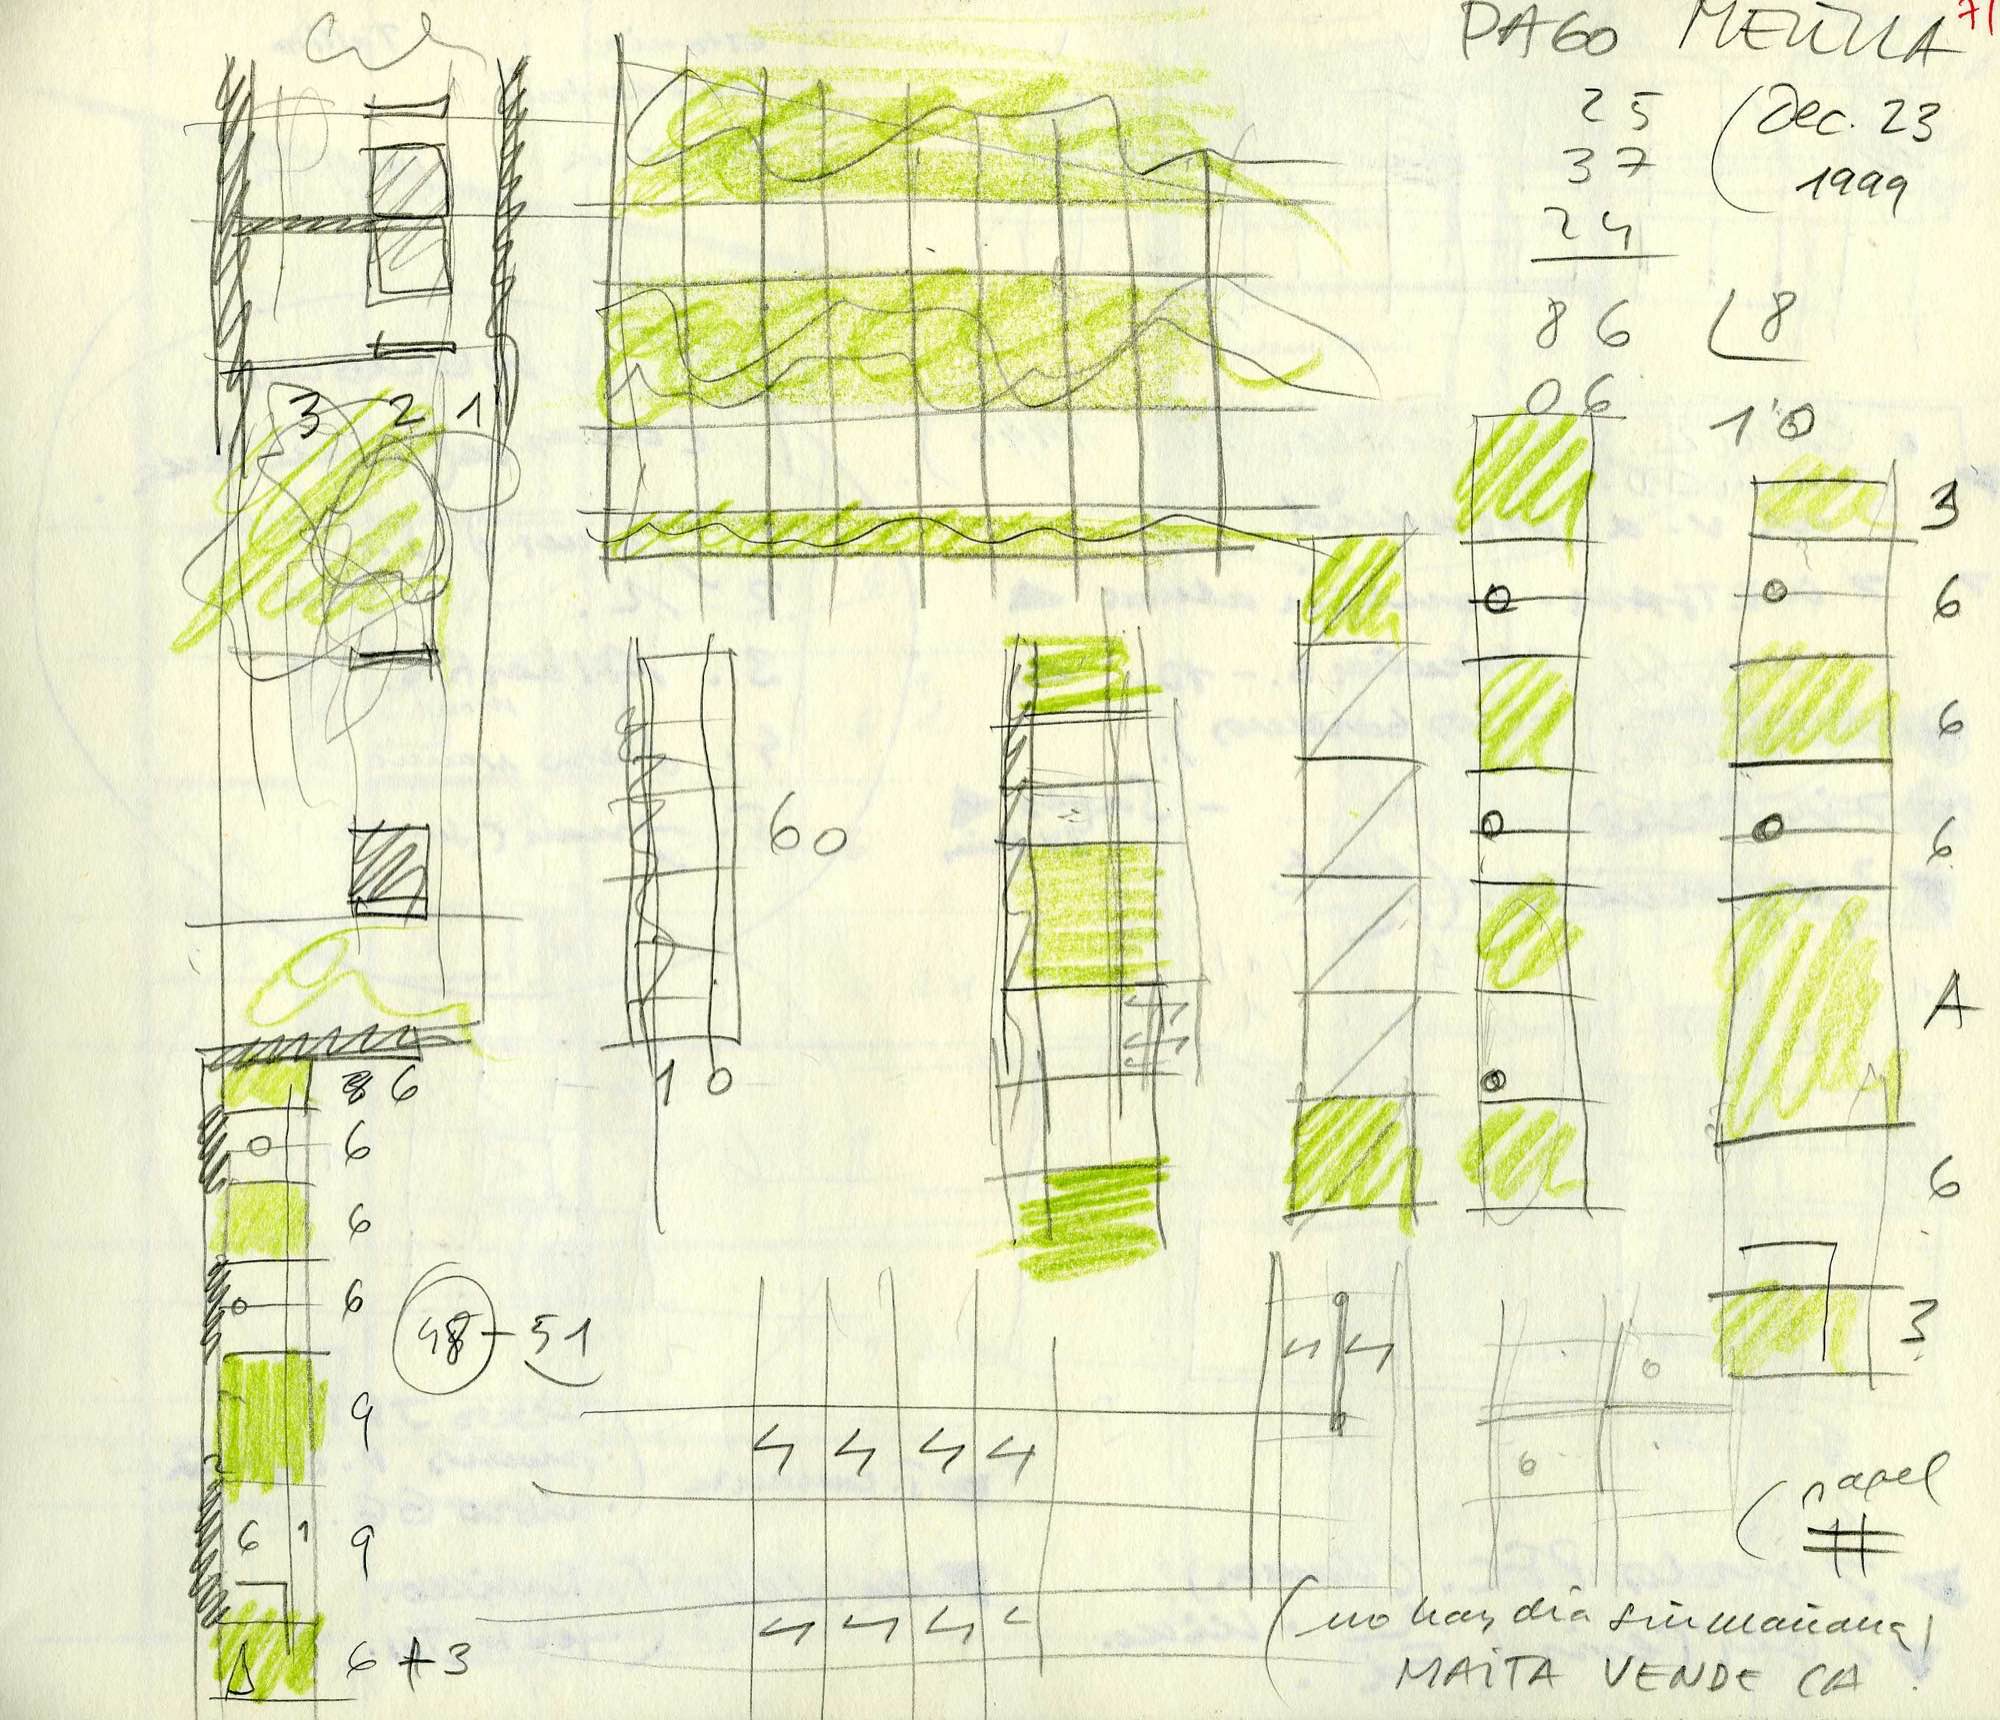 PAGO MELILLA 71
25 (Dec. 23
37 1999
24
86 8
06
1'0
3 2 1
3
6
6
6
A
6
3
60
10
6
6
6
6
9
6 1 9
6 A 3
48 - 51
4 4
4 4 4 4
6
6
4 4 4 4
(papel
(no hay día sin mañana)
MAITA VENDE CA